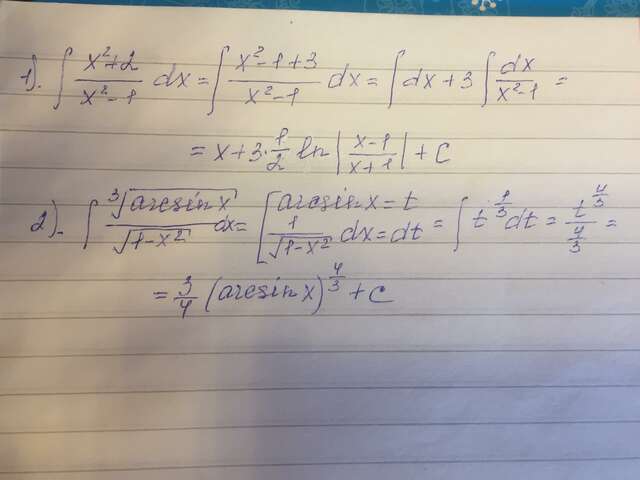 1). ∫ (x²+2)/(x²-1) dx = ∫ (x²-1+3)/(x²-1) dx = ∫ dx + 3 ∫ dx/(x²-1) =
= x + 3·1/2 ln |(x-1)/(x+1)| + C
2). ∫ ∛(arcsin x)/√(1-x²) dx = [arcsin x = t
1/√(1-x²) dx = dt = ∫ t^(1/3) dt = t^(4/3)/(4/3) =
= 3/4 (arcsin x)^(4/3) + C